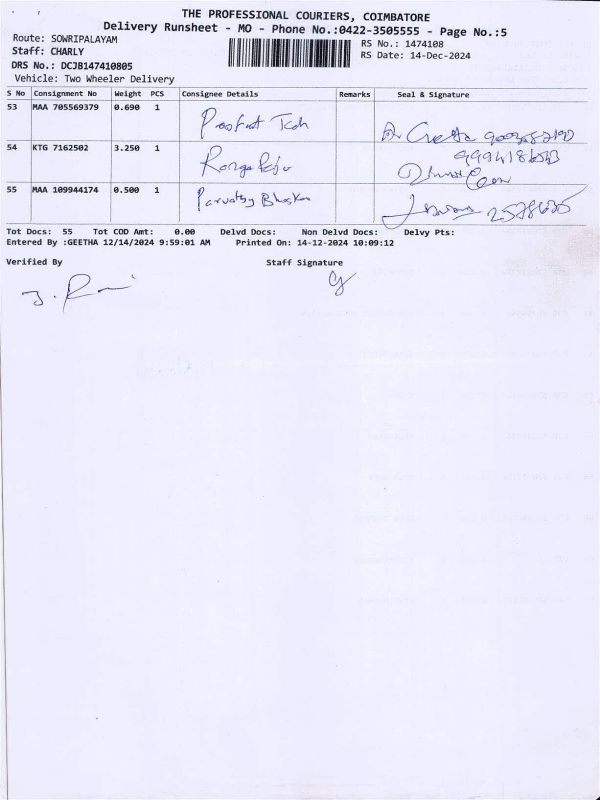 THE PROFESSIONAL COURIERS, COIMBATORE
Delivery Runsheet - MO - Phone No.:0422-3505555 - Page No.:5
Route: SOWRIPALAYAM
RS No.: 1474108
Staff: CHARLY
RS Date: 14-Dec-2024
DRS No.: DCJB147410805
Vehicle: Two Wheeler Delivery
S No Consignment No Weight PCS Consignee Details Remarks Seal & Signature
53 MAA 705569379 0.690 1
54 KTG 7162502 3.250 1
55 MAA 109944174 0.500 1 Parvathy Bhaskar
Tot Docs: 55 Tot COD Amt: 0.00 Delvd Docs: Non Delvd Docs: Delvy Pts:
Entered By :GEETHA 12/14/2024 9:59:01 AM Printed On: 14-12-2024 10:09:12
Verified By Staff Signature